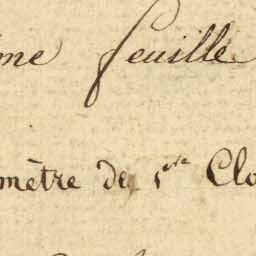 me feuille
mètre de s.te Clo